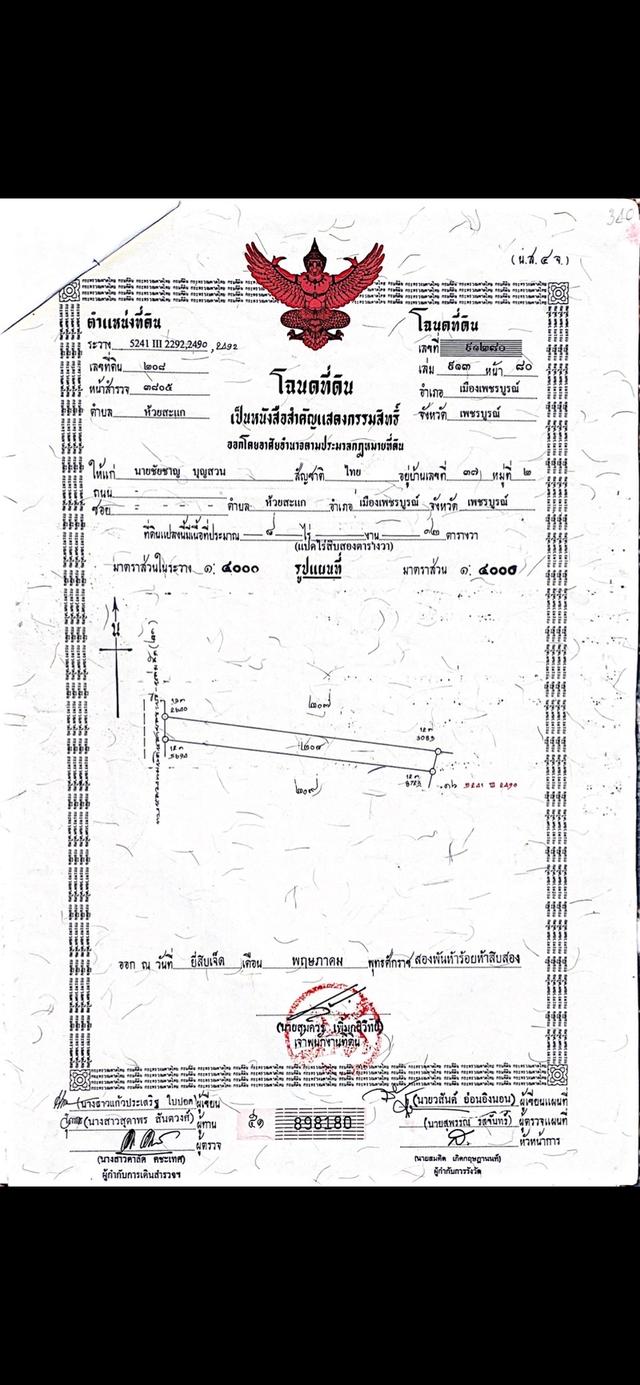 (น.ส.๔ จ.)
ตำแหน่งที่ดิน
ระวาง 5241 III 2292,2490 ,๒๔๙๒
เลขที่ดิน ๒๐๘
หน้าสำรวจ ๓๘๐๕
ตำบล ห้วยสะแก
โฉนดที่ดิน
เลขที่ ๙๑๒๘๐
เล่ม ๙๑๓ หน้า ๘๐
อำเภอ เมืองเพชรบูรณ์
จังหวัด เพชรบูรณ์
โฉนดที่ดิน
เป็นหนังสือสำคัญแสดงกรรมสิทธิ์
ออกโดยอาศัยอำนาจตามประมวลกฎหมายที่ดิน
ให้แก่ นายชัยชาญ บุญสวน สัญชาติ ไทย อยู่บ้านเลขที่ ๓๗ หมู่ที่ ๒
ถนน -
ซอย - - - - ตำบล ห้วยสะแก อำเภอ เมืองเพชรบูรณ์ จังหวัด เพชรบูรณ์
ที่ดินแปลงนี้มีเนื้อที่ประมาณ ๘ ไร่ - งาน ๑๒ ตารางวา
(แปดไร่สิบสองตารางวา)
มาตราส่วนในระวาง ๑: ๔๐๐๐ รูปแผนที่ มาตราส่วน ๑: ๔๐๐๐
น
๒๐๗
๒๐๘
๒๐๙
ออก ณ วันที่ ยี่สิบเจ็ด เดือน พฤษภาคม พุทธศักราช สองพันห้าร้อยห้าสิบสอง
เจ้าพนักงานที่ดิน
(นางสาวแก้วประเสริฐ ใบปอด) ผู้เขียน
(นางสาวสุดาพร สันตวงค์) ผู้ทาน
ผู้ตรวจ
ผู้กำกับการเดินสำรวจฯ
898180
(นายวสันต์ อ่อนอิงนอน) ผู้เขียนแผนที่
(นายสุพรรณ รสจันทร์) ผู้ตรวจแผนที่
หัวหน้าการ
(นายสมคิด เกิดกฤษฎานนท์)
ผู้กำกับการรังวัด